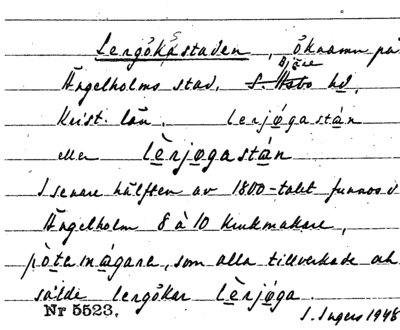 Lergökastaden, öknamn på
Bjäre
Ängelholms stad, S. Åsbo hd,
Krist. län. lerjøgastán
eller lèrjøgastán
I senare hälften av 1800-talet funnos i
Ängelholm 8 à 10 krukmakare,
pòtemágara, som alla tillverkade och
sålde lergökar lèrjøga.
Nr 5523.
I. Ingers 1948